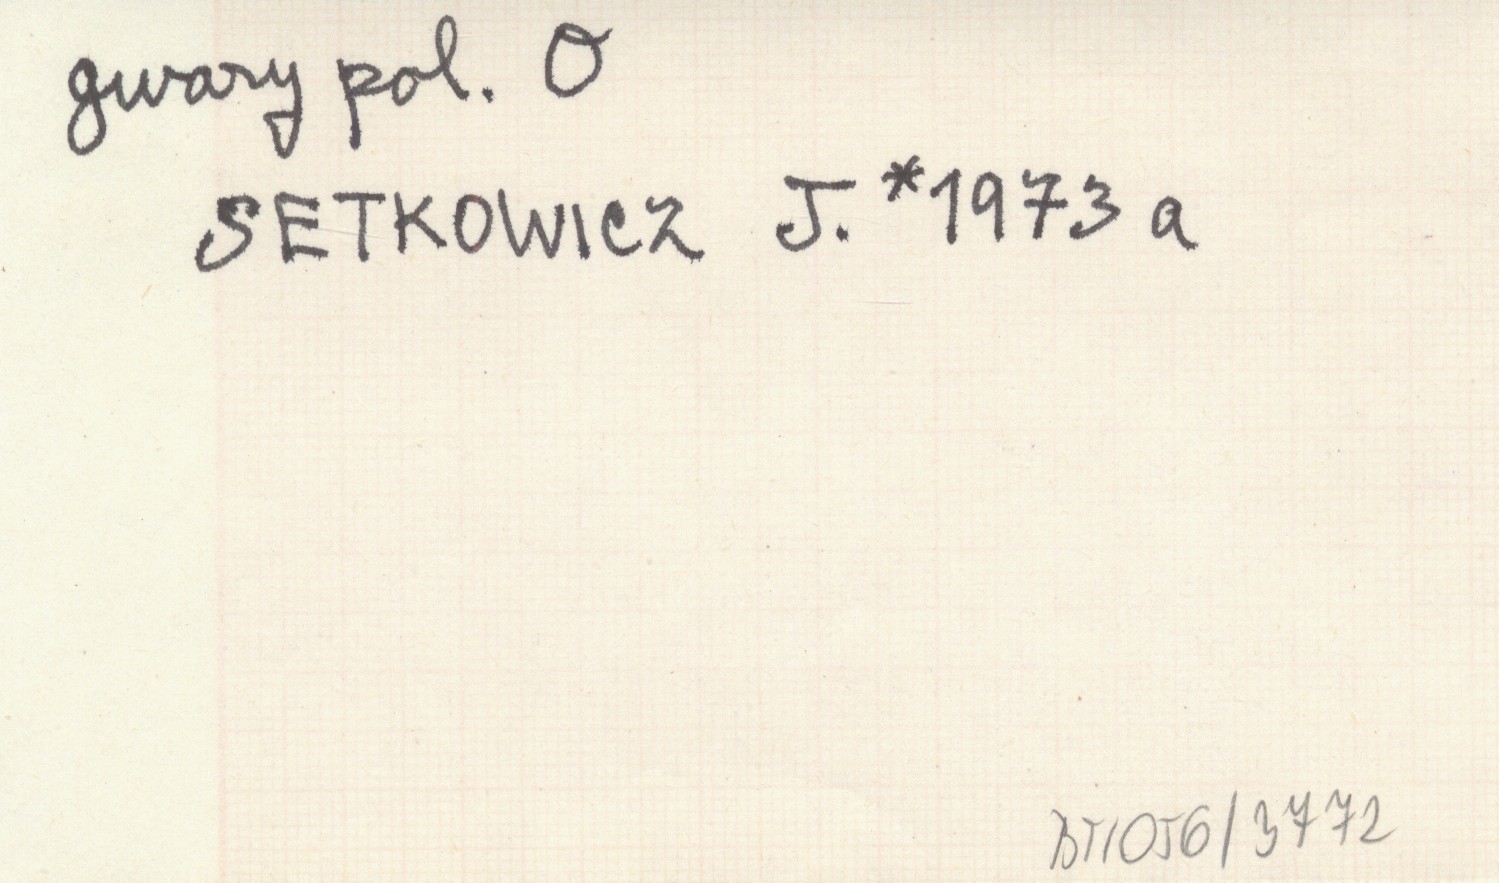 gwary pol. O
SETKOWICZ J. *1973 a
BT1056/3772